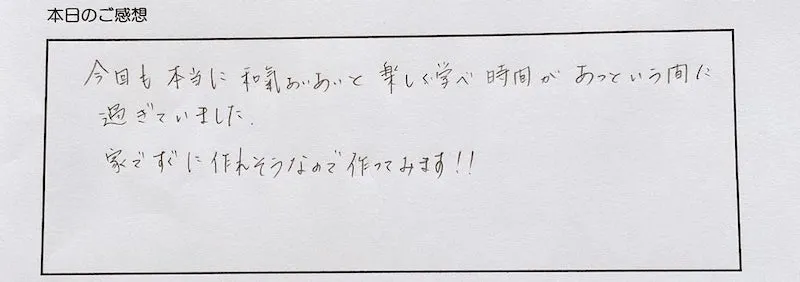 本日のご感想
今回も本当に和氣あいあいと楽しく学べ時間があっという間に
過ぎていました.
家ですぐに作れそうなので作ってみます!!